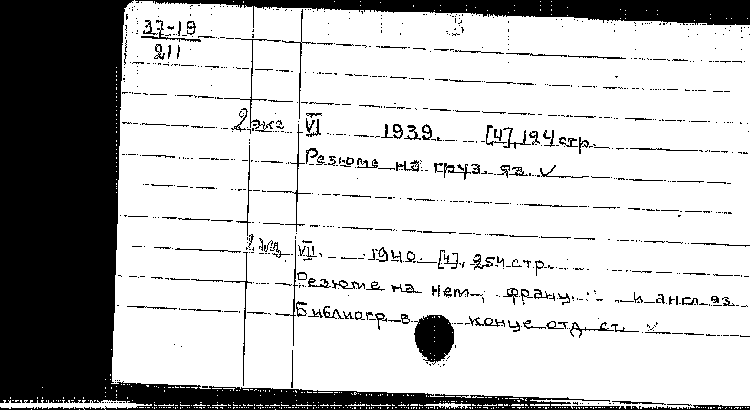 37-18
211
3
2 экз VI 1939. [4], 194 стр.
Резюме на груз. яз. ✓
2 экз VII. 1940. [4], 254 стр.
Резюме на нем., франц. и англ. яз.
Библиогр в конце отд. ст. ✓